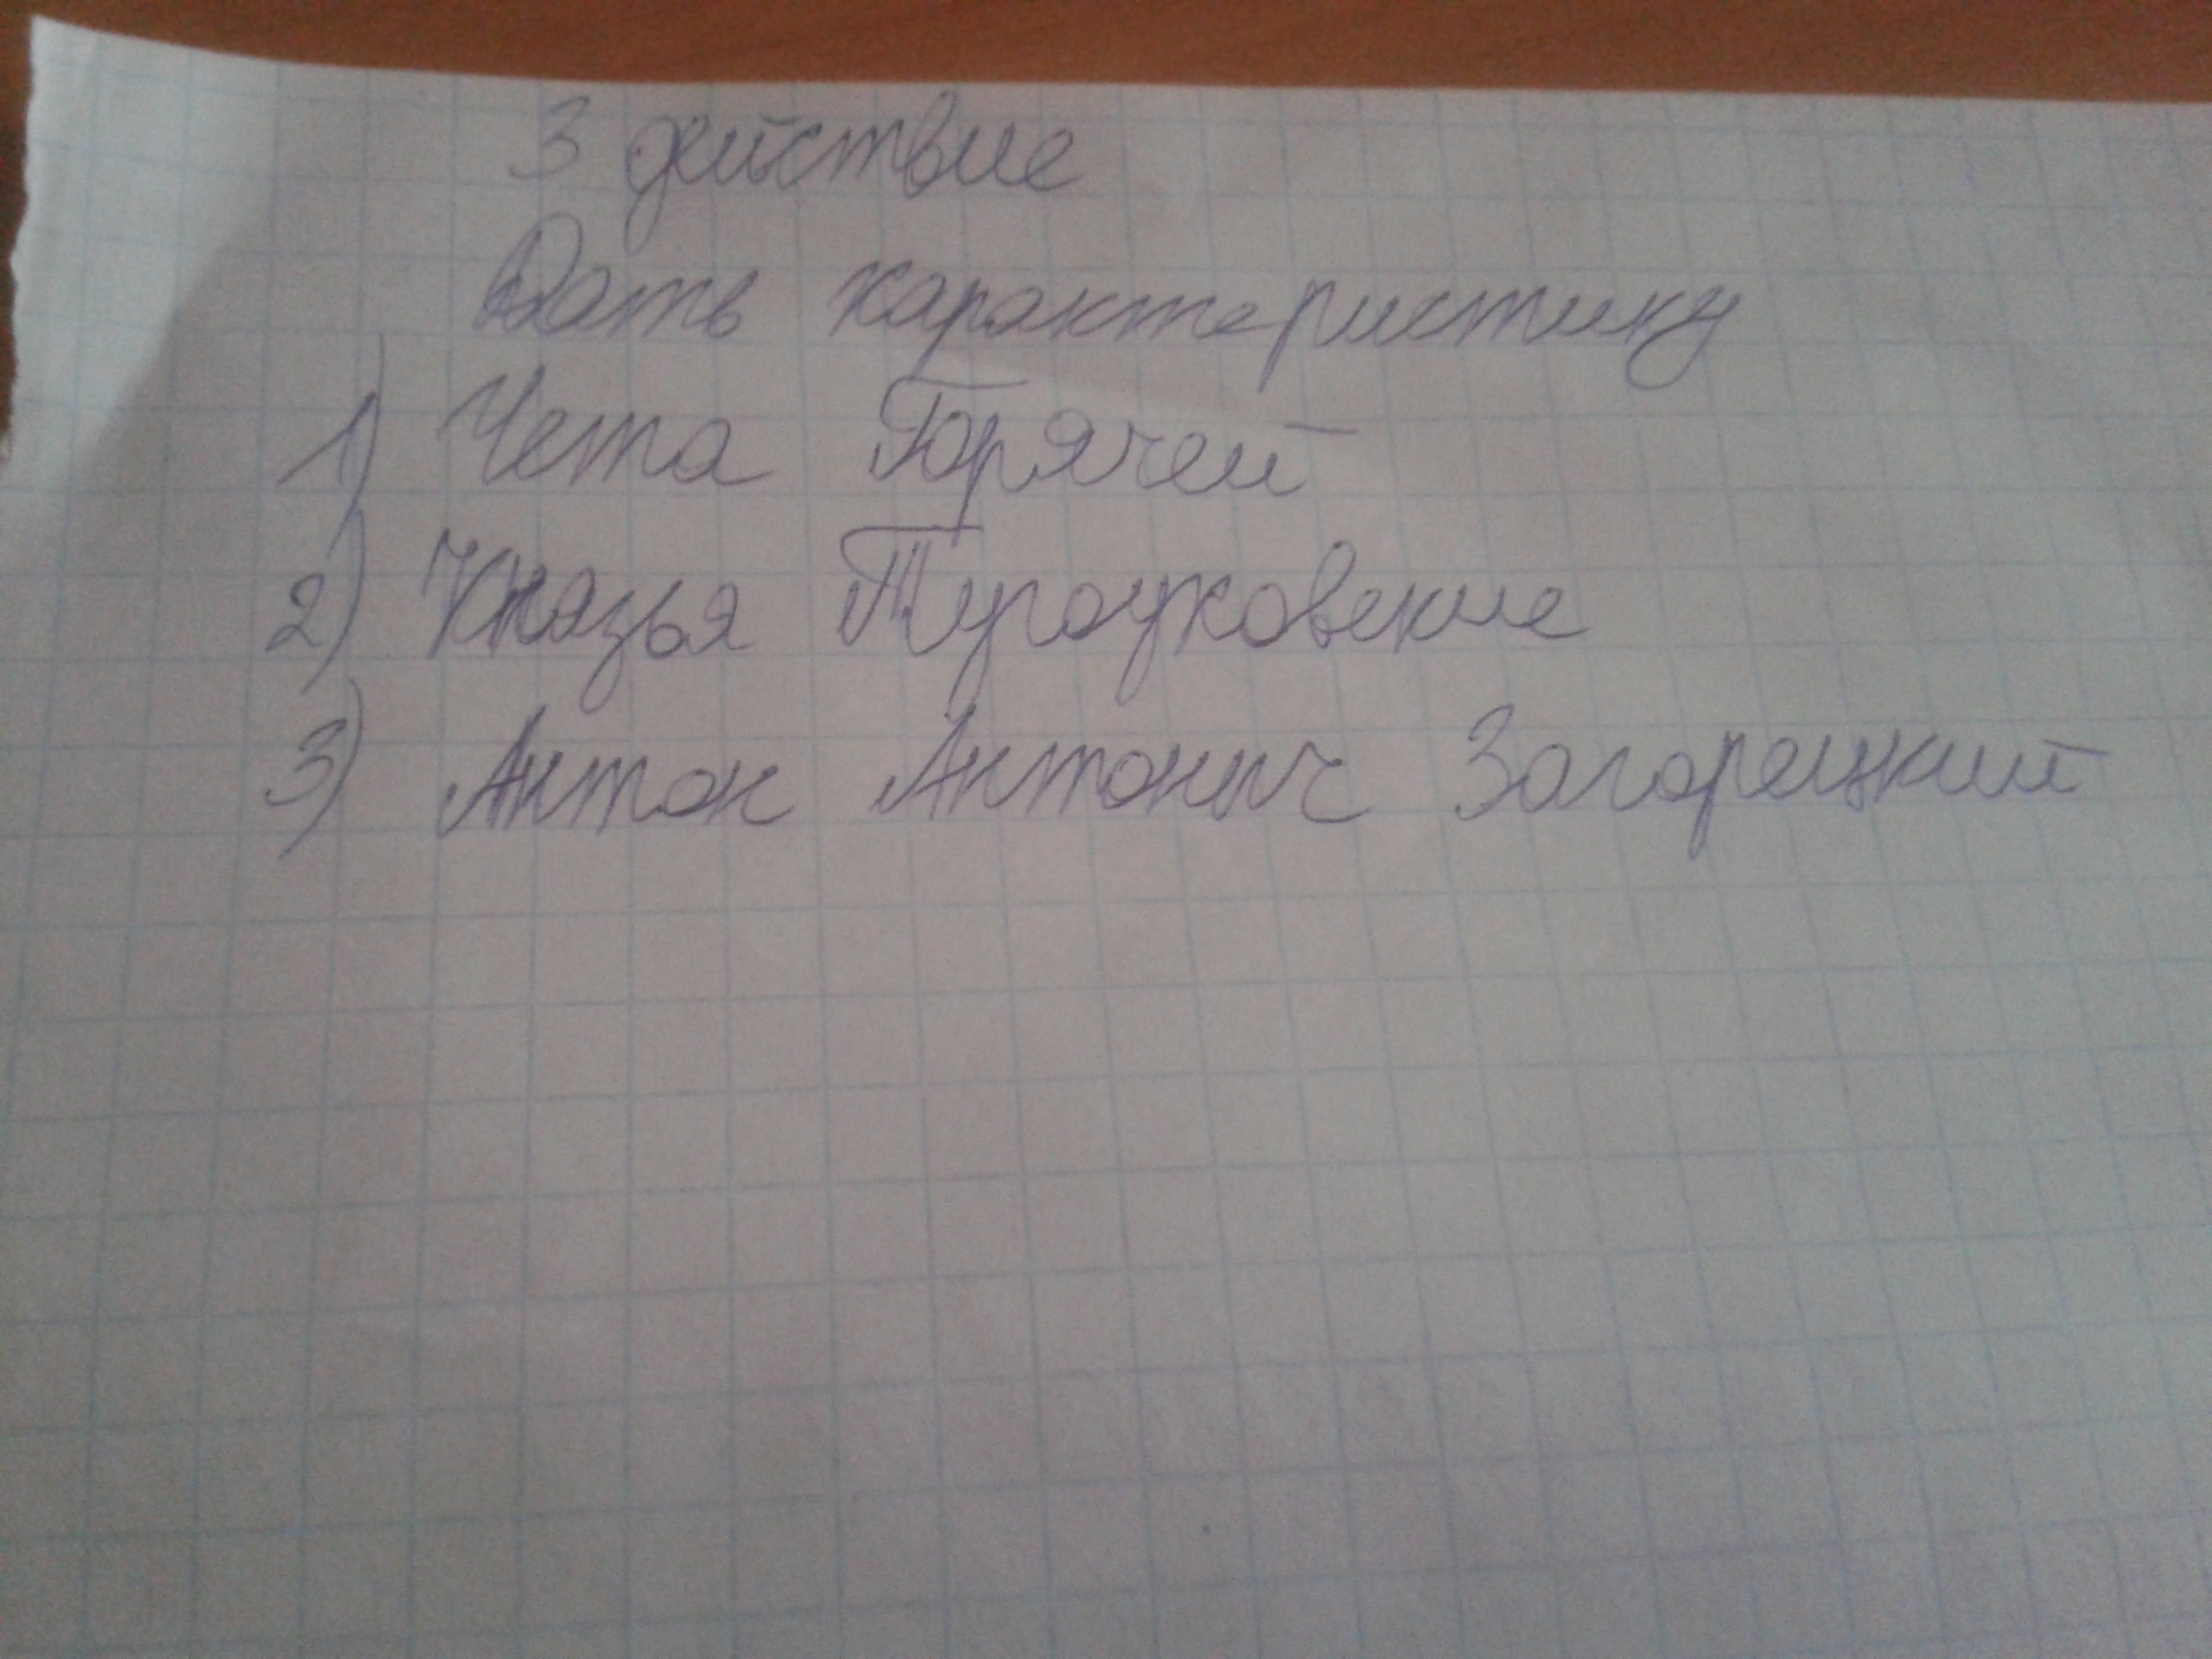 3 действие
Дать характеристику
1) Чета Горячей
2) Князья Тугоуховские
3) Антон Антоныч Загорецкий